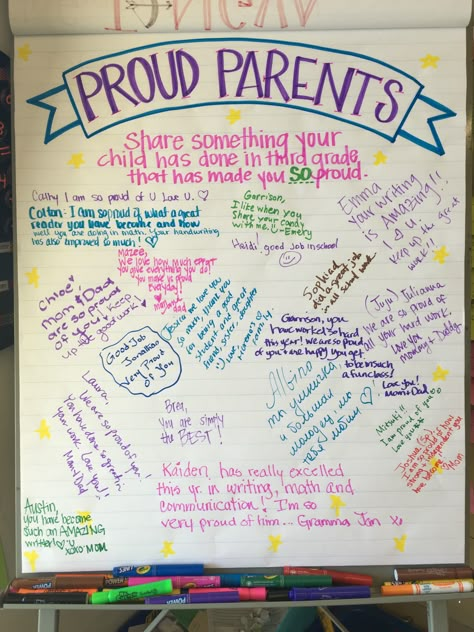 PROUD PARENTS
Share something your
child has done in third grade,
that has made you so proud.
Cathy I am so proud of U Love U. ♡
Colton- I am so proud of what a great
reader you have become and how
well you are doing in math. Your handwriting
has also improved so much! ♡
Garrison,
I like when you
share your candy
with me. -Emery
Haidi! good Job in school!
Emma
Your writing
is Amazing!!
I ♡ U
Keep up the great
work!!
Mazee,
We love how much spirit
you give everything you do!
You make us proud
everyday!
mom and
dad
Chloe!
Mom & Dad
are so proud
of you! Keep
up the good work!
Good Job
Jonathan
Very Proud
of You
Jessica we love you
so much, thank you
for being a good
student and great
friend, sister, daughter
Love
Garrison, you
have worked so hard
this year! We are so proud
of you & are happy you get
to be in such
a fun class!
Love you!
Mom & Dad
(Juju) Julianna
We are so proud of
all your hard work.
Love you
mommy & Daddy
in all school work.
Laura,
We are so proud of you!
You have done so great in
your work. Love you!!
Mom & Dad
Brea,
You are simply
the BEST!
I am proud of you
Love you
I am so proud of how
strong & independent you
have become
Mom
Kaiden, has really excelled
this yr. in writing, math and
communication! I'm so
very proud of him... Gramma Jan xo
Austin,
you have become
such an AMAZING
writer! ♡ U
XOXO MOM